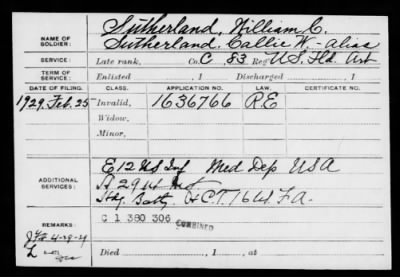 NAME OF SOLDIER: Sutherland, William C.
Sutherland, Callie W. - Alias
SERVICE: Late rank, Co. C 83 Reg U.S. Fld Art
TERM OF SERVICE: Enlisted , 1 Discharged , 1
DATE OF FILING. CLASS. APPLICATION NO. LAW. CERTIFICATE NO.
1929. Feb. 25 Invalid, 1636766 R.E
Widow,
Minor,
ADDITIONAL SERVICES: E 12 US Inf Med Dep USA
A 29 U
Hdq. Batty. H C.T. 16 U.S. F.A.
C 1 380 306 COMBINED
REMARKS:
Died , 1 , at